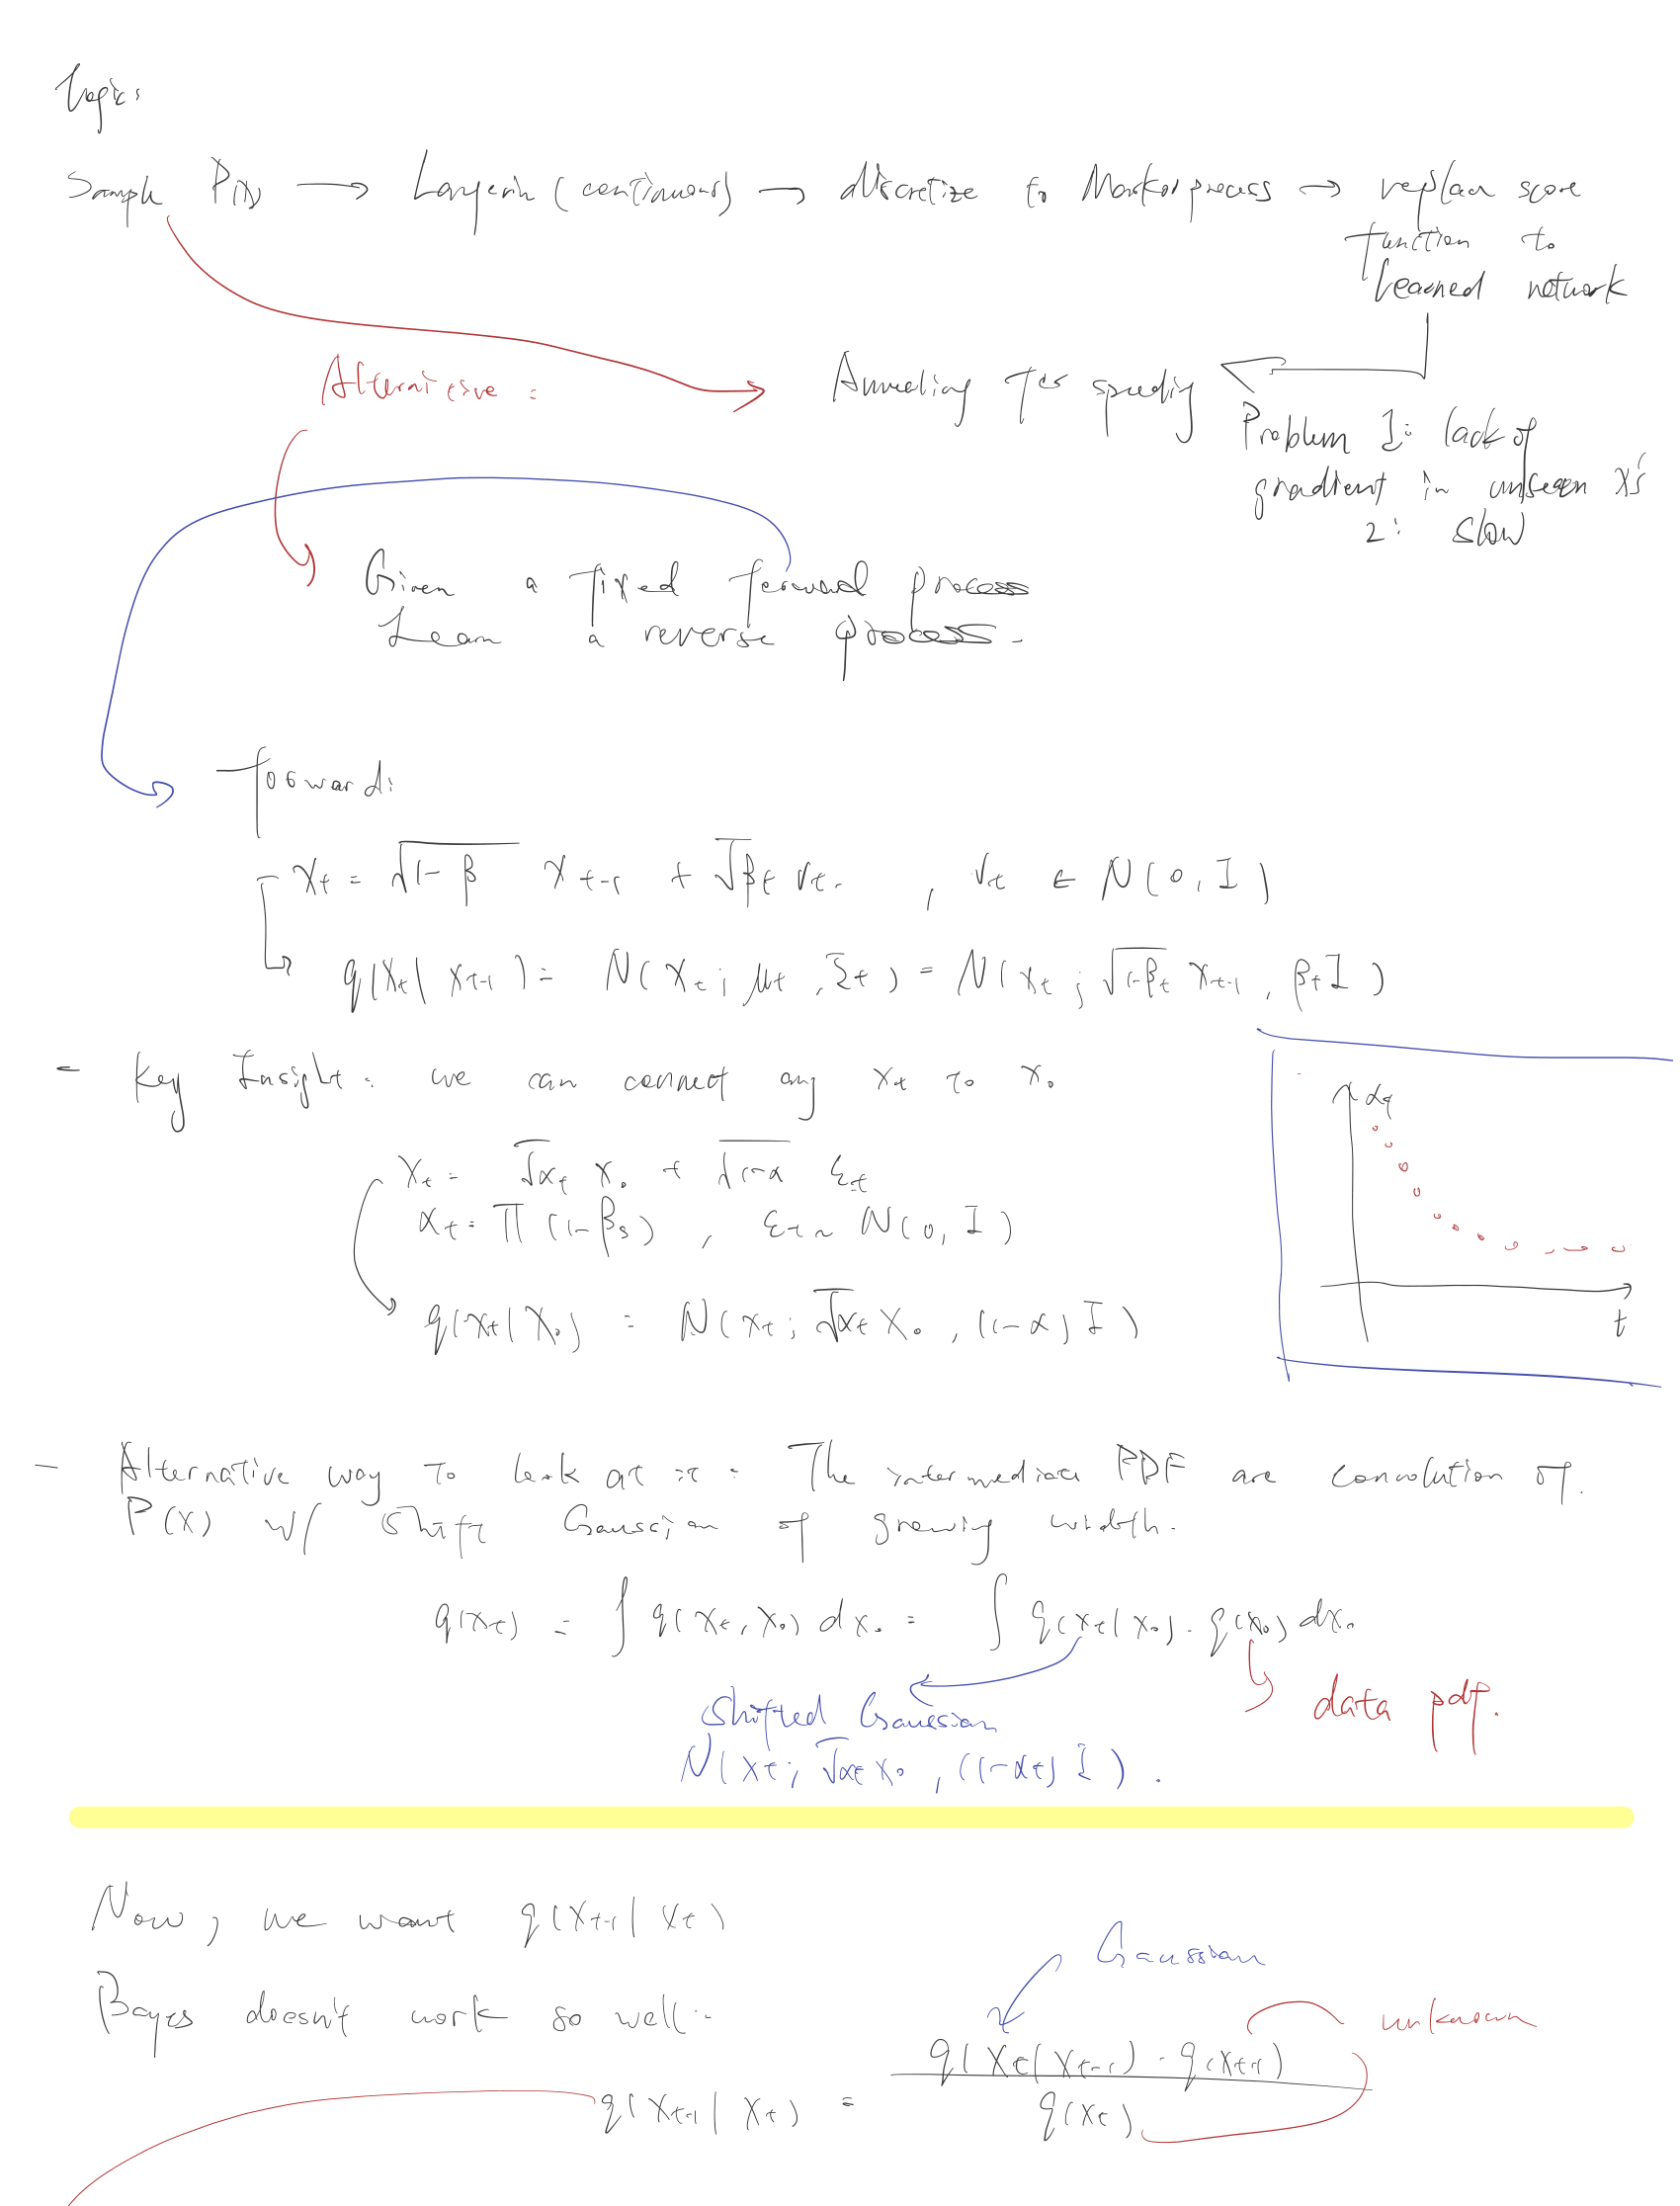 Logic:
Sample P(x) → Langevin (continuous) → discretize to Markov process → replace score
function to
learned network
Alternative:
Annealing for speeding
Problem 1: lack of
gradient in unseen x's
2: slow
Given a fixed forward process
Learn a reverse process.
forward:
x_t = √(1-β) x_{t-1} + √β_t v_t. , v_t ∈ N(0, I)
q(x_t | x_{t-1}) = N(x_t; μ_t, Σ_t) = N(x_t; √(1-β_t) x_{t-1}, β_t I)
- Key Insight: we can connect any x_t to x_0
α_t
x_t = √α_t x_0 + √(1-α) ε_t
α_t = Π (1-β_s) , ε_t ~ N(0, I)
q(x_t | x_0) = N(x_t; √α_t x_0, (1-α) I)
t
- Alternative way to look at it: The intermediate PDF are convolution of
P(x) w/ shift Gaussian of growing width.
q(x_t) = ∫ q(x_t, x_0) dx_0 = ∫ q(x_t | x_0) · q(x_0) dx_0
Shifted Gaussian
data pdf.
N(x_t; √α_t x_0, (1-α_t) I).
Now, we want q(x_{t-1} | x_t)
Gaussian
Bayes doesn't work so well:
unknown
q(x_{t-1} | x_t) = q(x_t | x_{t-1}) · q(x_{t-1}) / q(x_t)